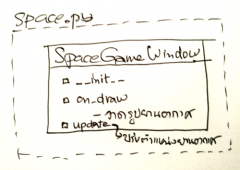 space.py
SpaceGameWindow
__init__
on_draw
- วาดรูปยานอวกาศ
update
ปรับตำแหน่งยานอวกาศ